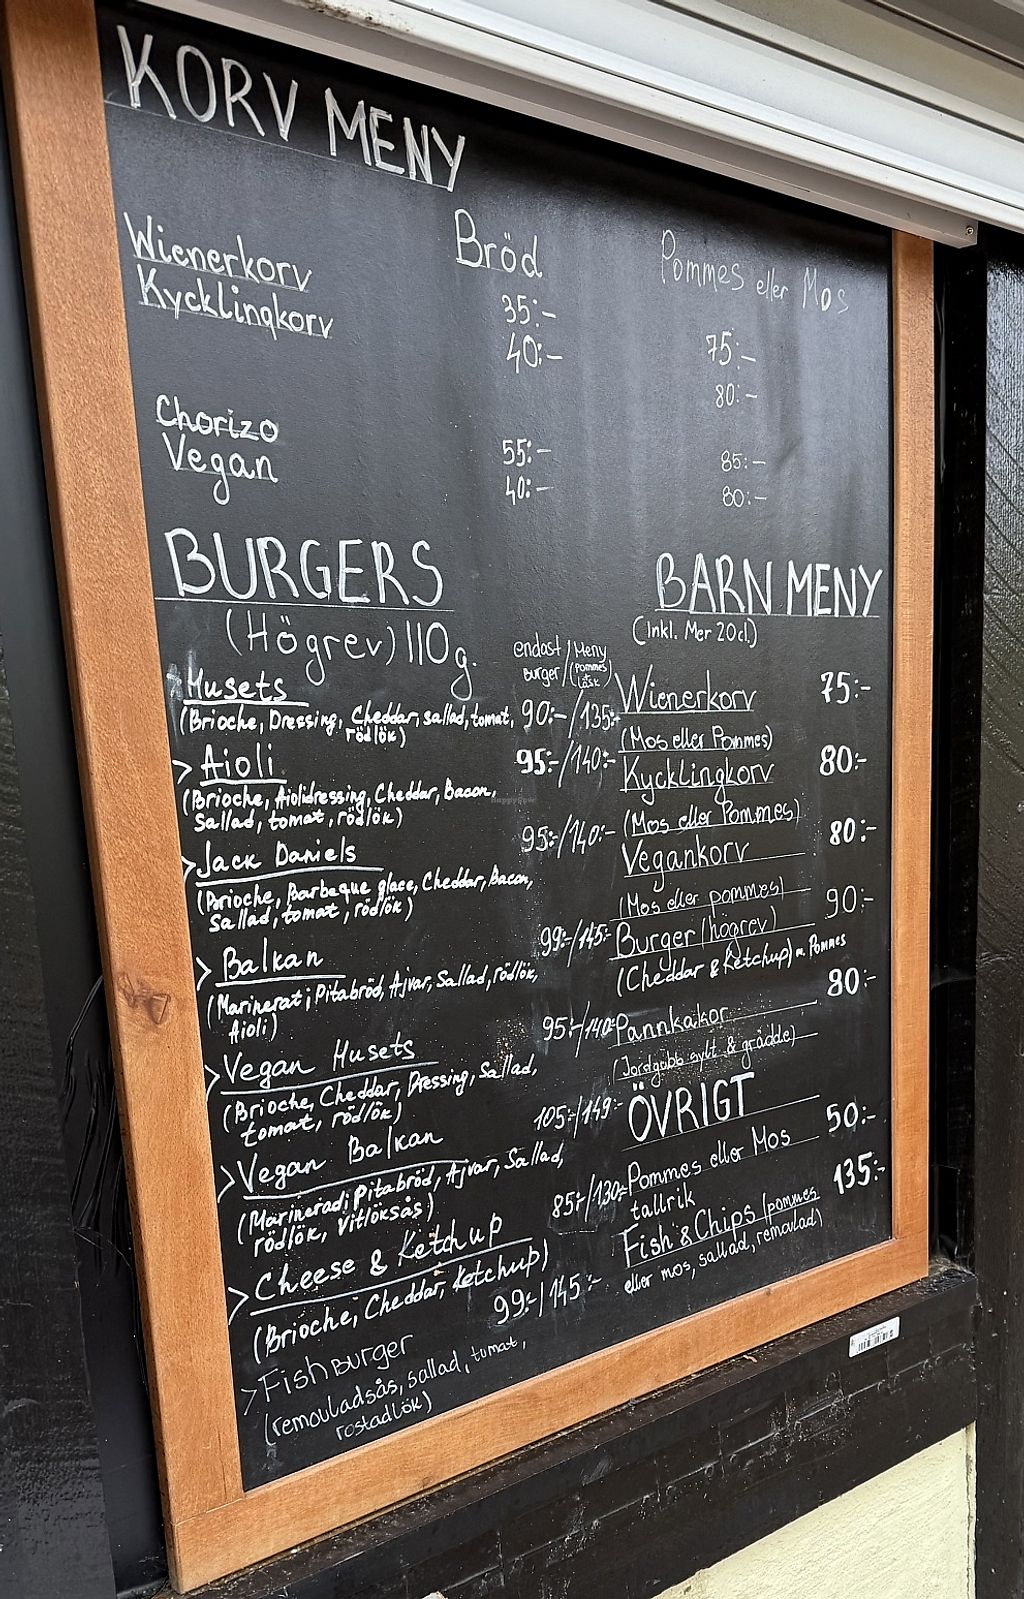 KORV MENY
Bröd
Pommes eller Mos
Wienerkorv 35:- 75:-
Kycklingkorv 40:- 80:-
Chorizo 55:- 85:-
Vegan 40:- 80:-
BURGERS
(Högrev) 110g.
endast Burger / Meny (pommes + läsk)
Husets
(Brioche, Dressing, Cheddar, sallad, tomat, 90:-/135:-
rödlök)
> Aioli 95:-/140:-
(Brioche, Aiolidressing, Cheddar, Bacon,
Sallad, tomat, rödlök)
> Jack Daniels 95:-/140:-
(Brioche, Barbeque glace, Cheddar, Bacon,
Sallad, tomat, rödlök)
> Balkan 99:-/145:-
(Marinerat; Pitabröd, Ajvar, Sallad, rödlök,
Aioli)
> Vegan Husets 95:-/140:-
(Brioche, Cheddar, Dressing, Sallad,
tomat, rödlök)
> Vegan Balkan 105:-/149:-
(Marinerad; Pitabröd, Ajvar, Sallad,
rödlök, Vitlöksås)
> Cheese & Ketchup 85:-/130:-
(Brioche, Cheddar, ketchup)
> Fishburger 99:-/145:-
(remouladsås, sallad, tomat,
rostadlök)
BARN MENY
(Inkl. Mer 20cl.)
Wienerkorv 75:-
(Mos eller Pommes)
Kycklingkorv 80:-
(Mos eller Pommes)
Vegankorv 80:-
(Mos eller pommes)
Burger (högrev) 90:-
(Cheddar & Ketchup) m. Pommes
Pannkakor 80:-
(Jordgubb sylt & grädde)
ÖVRIGT
Pommes eller Mos 50:-
tallrik
Fish & Chips (pommes 135:-
eller mos, sallad, remoulad)
HappyCow